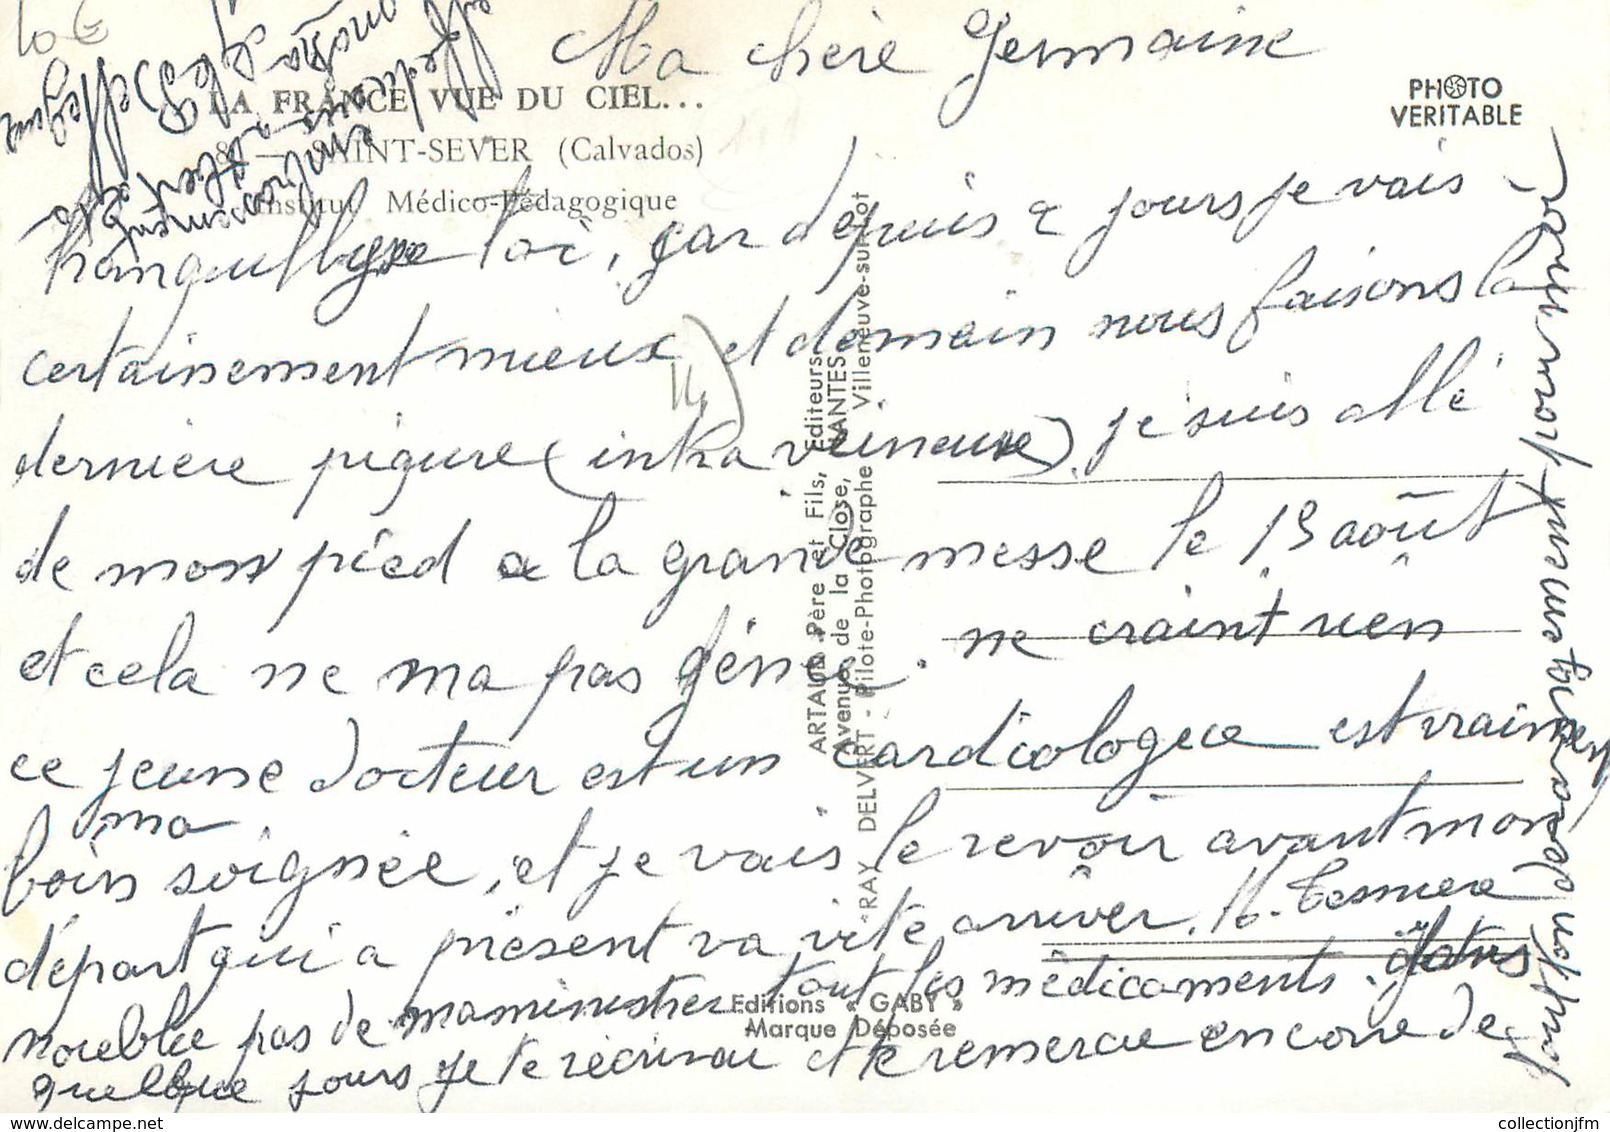 10 €
Ma chère Germaine
PHOTO
VERITABLE
LA FRANCE VUE DU CIEL...
8 — SAINT-SEVER (Calvados)
Institut Médico-Pédagogique
tranquillyse toi, car depuis 2 jours je vais
certainement mieux et demain nous faisons la
14
dernière piqure (intra veineuse) je suis allé
de mon pied a la grand messe le 15 août
et cela ne ma pas génée. ne craint rien
ce jeune docteur est un cardiologue est vraiment
ma
bien soignée, et je vais le revoir avant mon
départ qui a présent va vite arriver. M.
noublie pas de maministrer tout les médicaments. dans
quelque jours je te récrirai et te remercie encore de
ton désintéressement pour moi
ARTAUD Père et Fils, Editeurs
Avenue de la Close, NANTES
RAY DELVERT - Pilote-Photographe Villeneuve-sur-Lot
Editions « GABY »
Marque Déposée
collectionjfm